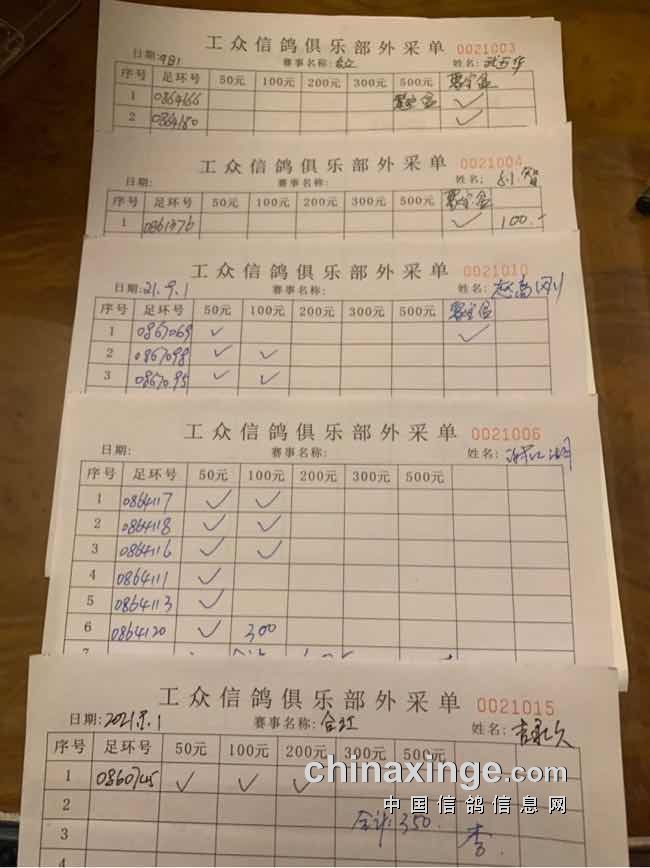 工众信鸽俱乐部外采单 0021003
日期:9月1 赛事名称: 姓名:
序号 足环号 50元 100元 200元 300元 500元
1 0864166 ✓
2 0864180 ✓
工众信鸽俱乐部外采单 0021004
日期: 赛事名称: 姓名:刘智
序号 足环号 50元 100元 200元 300元 500元
1 0861376 ✓ 100.-
工众信鸽俱乐部外采单 0021010
日期:21.9.1 赛事名称: 姓名:赵高刚
序号 足环号 50元 100元 200元 300元 500元
1 0867069 ✓ ✓
2 0867098 ✓ ✓
3 0867095 ✓ ✓
工众信鸽俱乐部外采单 0021006
日期: 赛事名称: 姓名:
序号 足环号 50元 100元 200元 300元 500元
1 0864117 ✓ ✓
2 0864118 ✓ ✓
3 0864116 ✓ ✓
4 0864111 ✓
5 0864113 ✓
6 0864120 ✓ 300
7
工众信鸽俱乐部外采单 0021015
日期:2021.9.1 赛事名称: 姓名:吉永久
序号 足环号 50元 100元 200元 300元 500元
1 0860745 ✓ ✓ ✓
2
3 合计:350. 李
4
chinaxinge.com
中国信鸽信息网